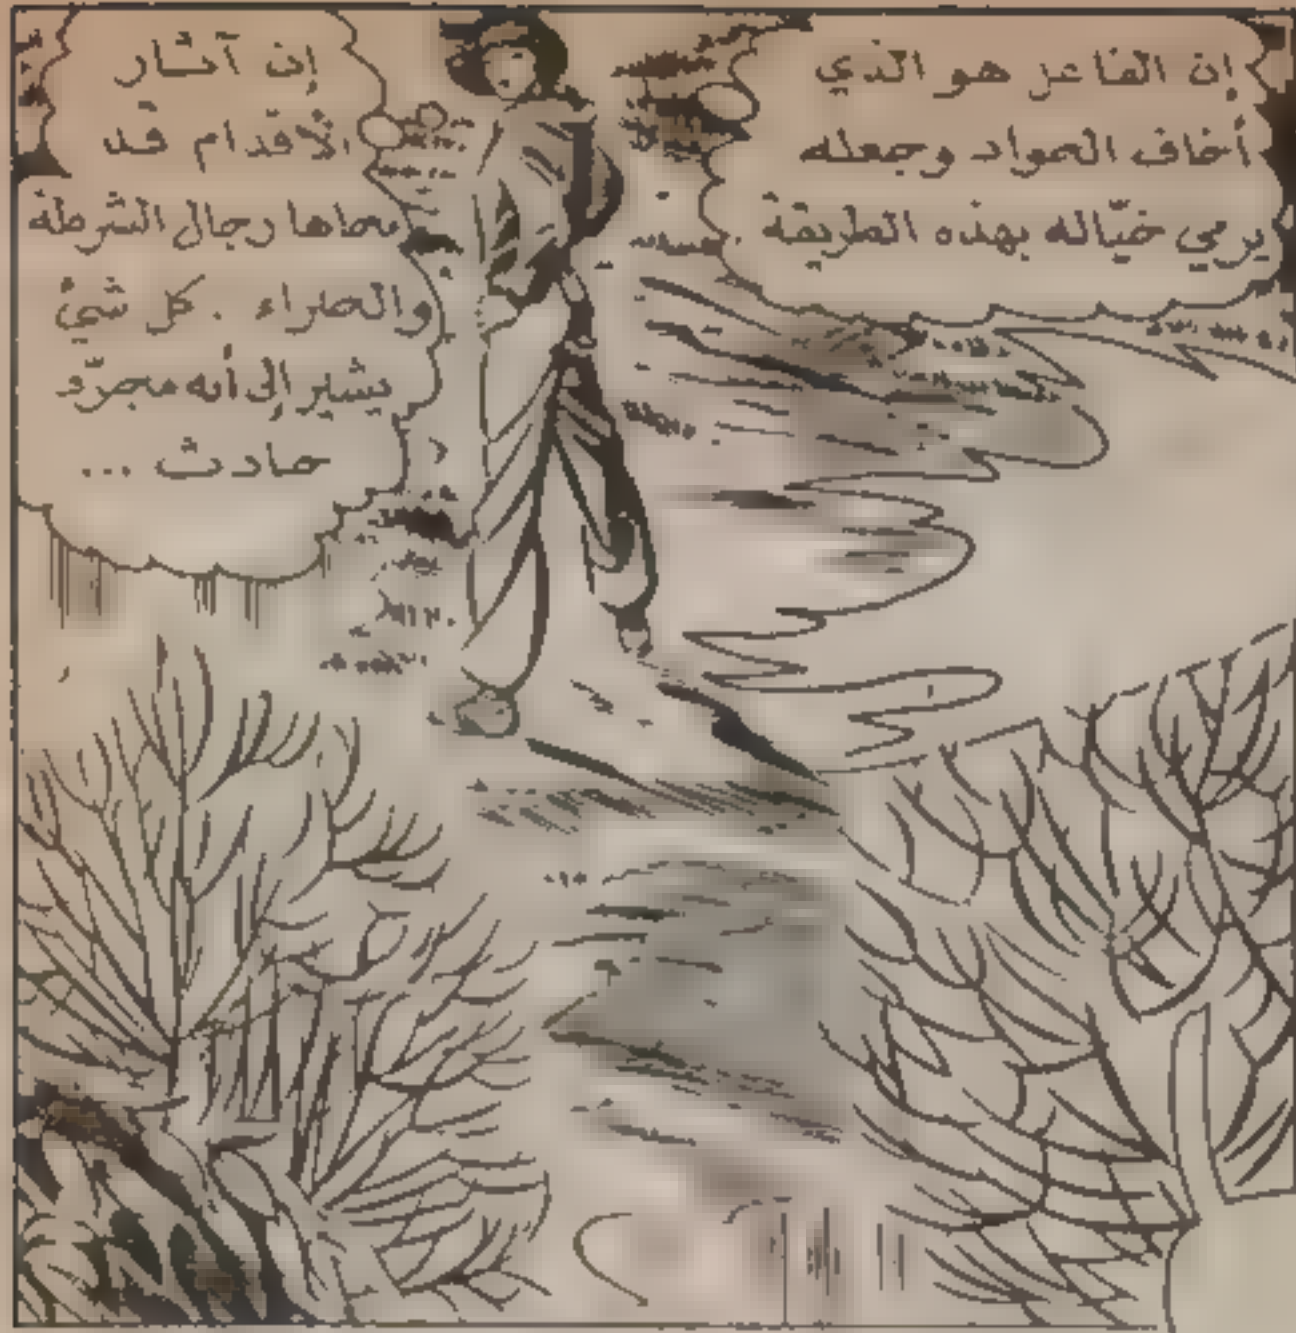 إن الفاعل هو الذي
أخاف الجواد وجعله
يرمي خيّاله بهذه الطريقة.
إن آثار
الأقدام قد
محاها رجال الشرطة
والمدراء . كل شيئ
يشير إلى أنه مجرّد
حادث ...